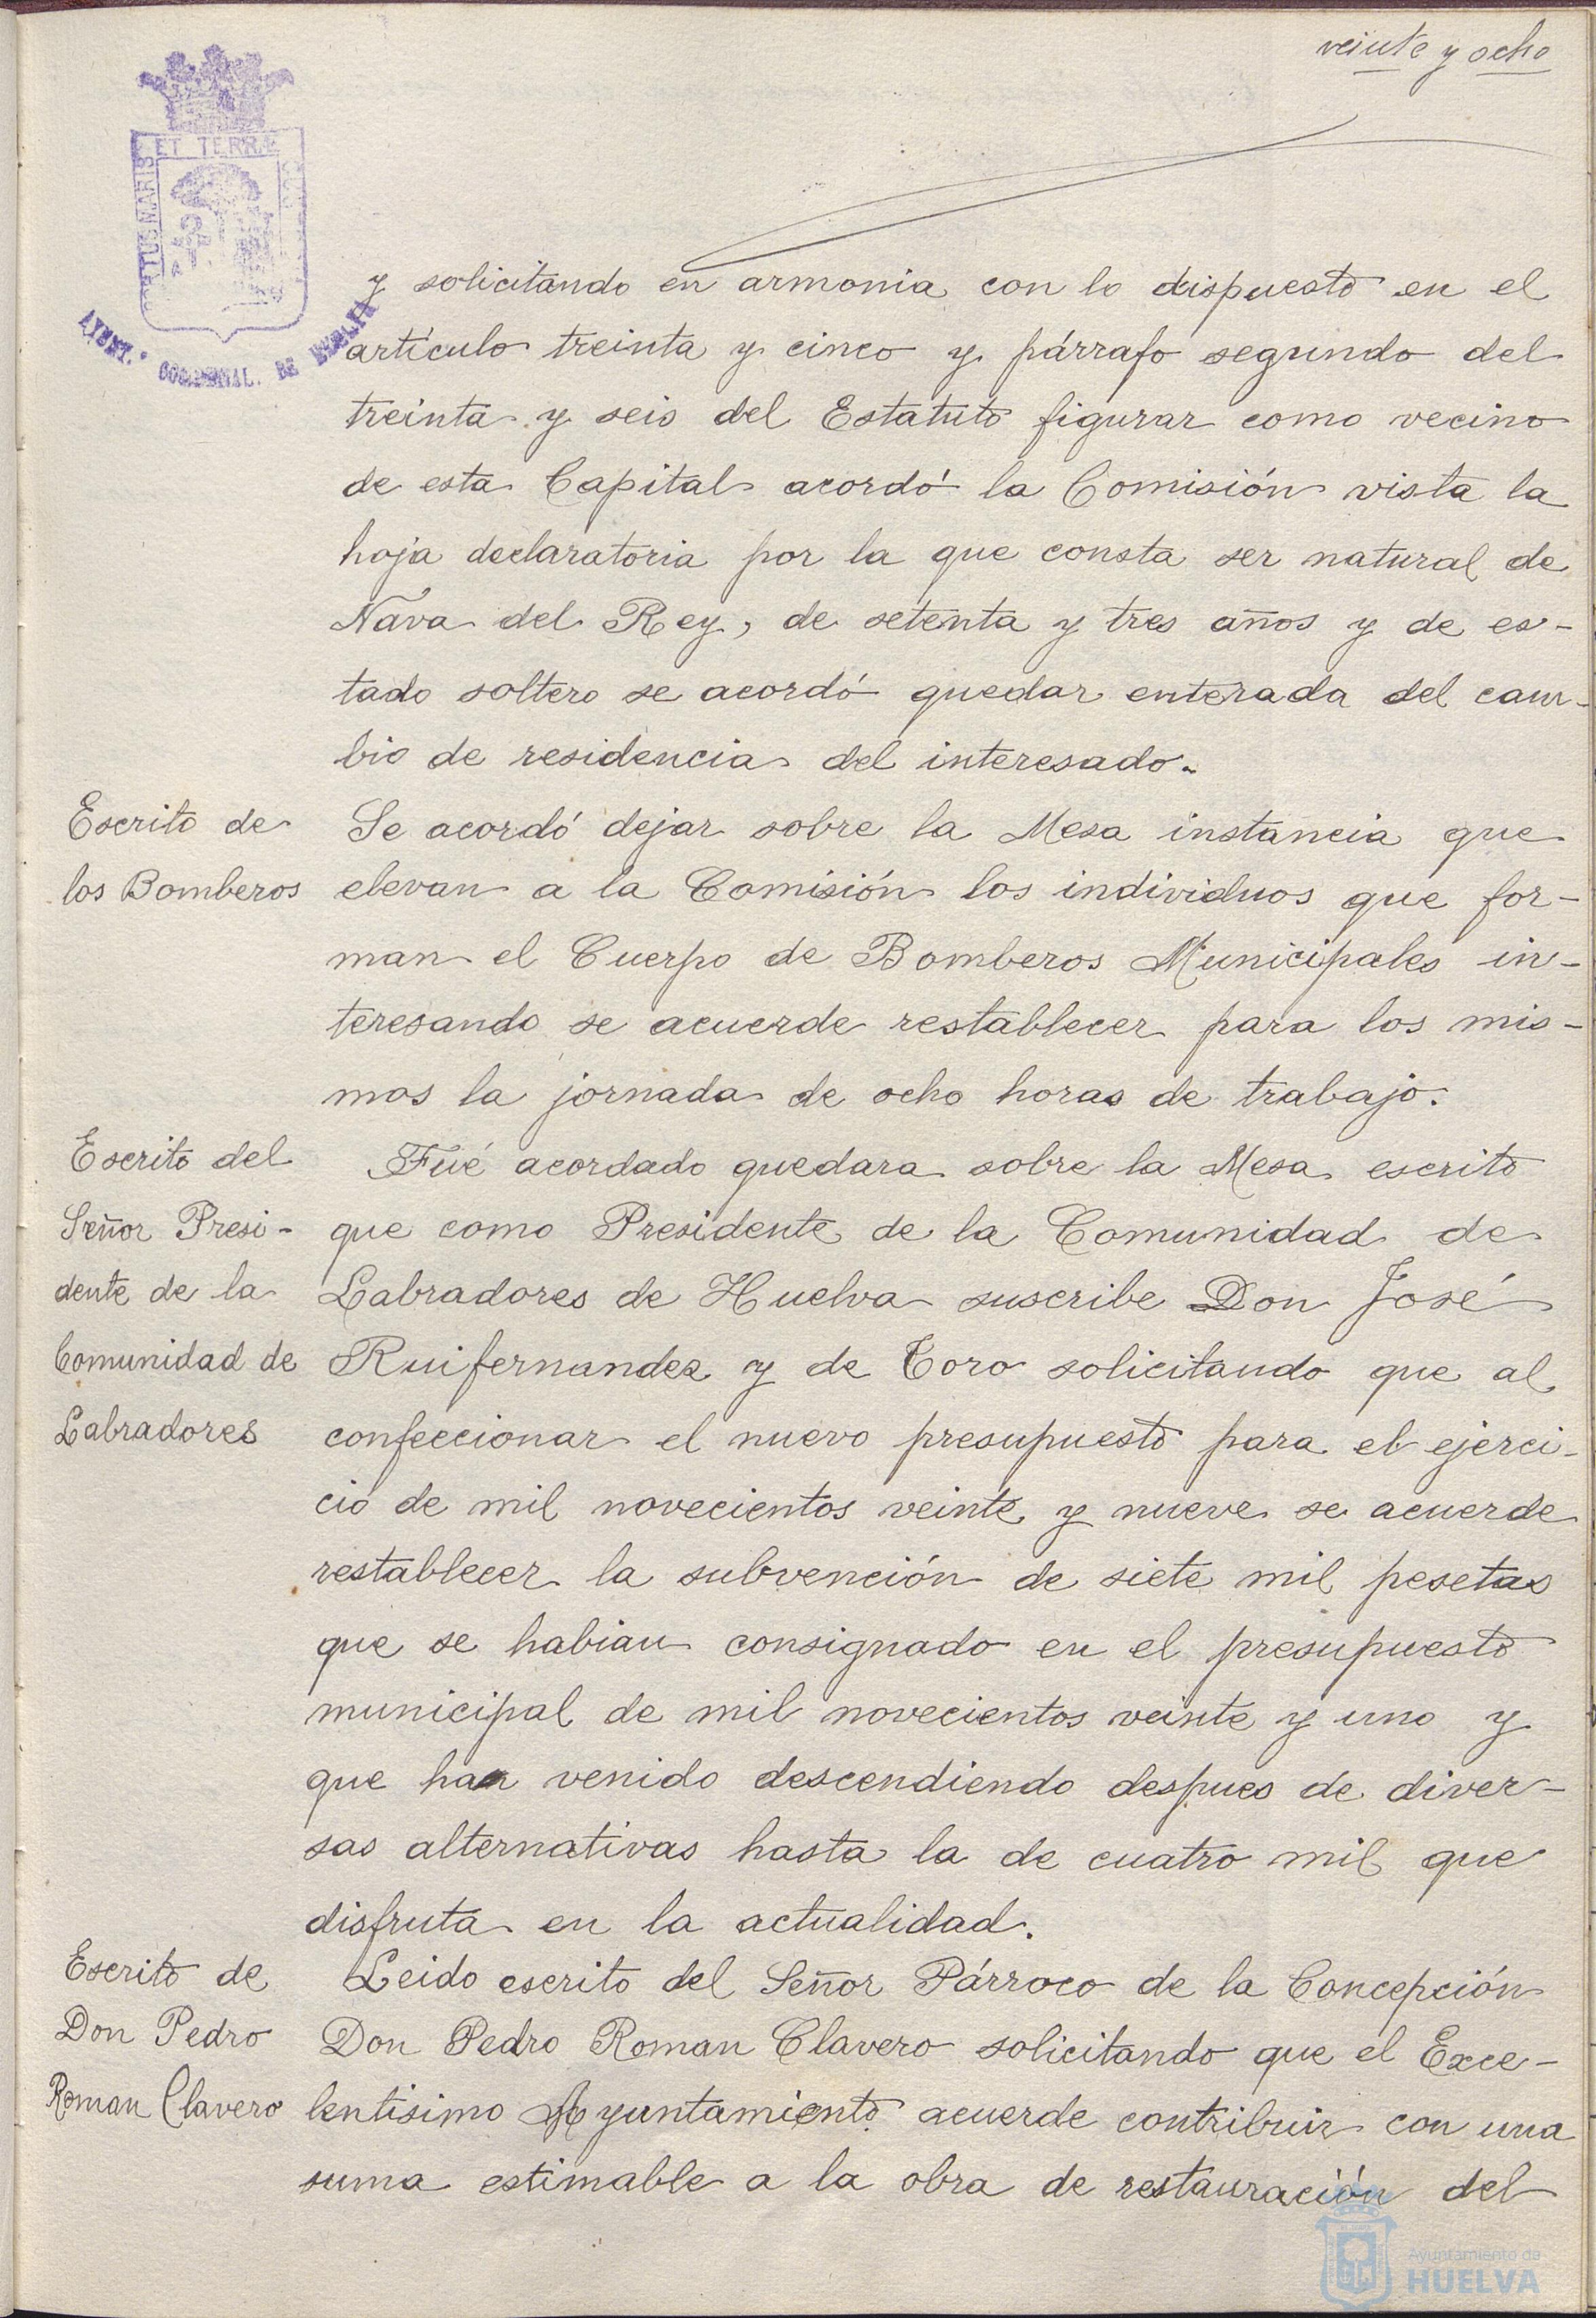 veinte y ocho
ET TERRÆ
MARIS
AYUNT.º
DE
y solicitando en armonia con lo dispuesto en el
artículo treinta y cinco y párrafo segundo del
treinta y seis del Estatuto figurar como vecino
de esta Capital acordó la Comisión vista la
hoja declaratoria por la que consta ser natural de
Nava del Rey, de setenta y tres años y de es-
tado soltero se acordó quedar enterada del cam-
bio de residencia del interesado.
Escrito de
los Bomberos
Se acordó dejar sobre la Mesa instancia que
elevan a la Comisión los individuos que for-
man el Cuerpo de Bomberos Municipales in-
teresando se acuerde restablecer para los mis-
mos la jornada de ocho horas de trabajo.
Escrito del
Señor Presi-
dente de la
Comunidad de
Labradores
Fué acordado quedara sobre la Mesa escrito
que como Presidente de la Comunidad de
Labradores de Huelva suscribe Don José
Ruifernandez y de Toro solicitando que al
confeccionar el nuevo presupuesto para el ejerci-
cio de mil novecientos veinte y nueve se acuerde
restablecer la subvención de siete mil pesetas
que se habian consignado en el presupuesto
municipal de mil novecientos veinte y uno y
que han venido descendiendo despues de diver-
sas alternativas hasta la de cuatro mil que
disfruta en la actualidad.
Escrito de
Don Pedro
Roman Clavero
Leido escrito del Señor Párroco de la Concepción
Don Pedro Roman Clavero solicitando que el Exce-
lentisimo Ayuntamiento acuerde contribuir con una
suma estimable a la obra de restauración del
Ayuntamiento de
HUELVA